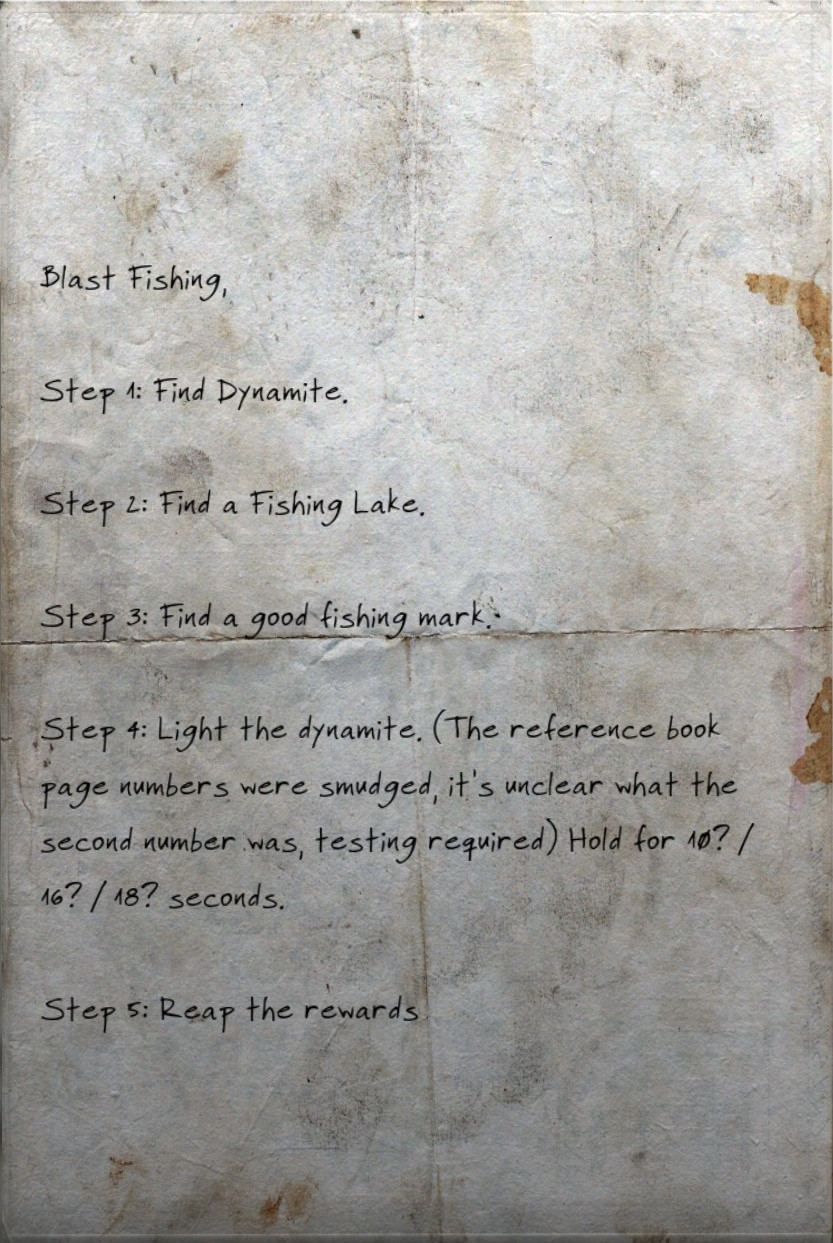 Blast Fishing,
Step 1: Find Dynamite.
Step 2: Find a Fishing Lake.
Step 3: Find a good fishing mark.
Step 4: Light the dynamite. (The reference book
page numbers were smudged, it's unclear what the
second number was, testing required) Hold for 10? /
16? / 18? seconds.
Step 5: Reap the rewards